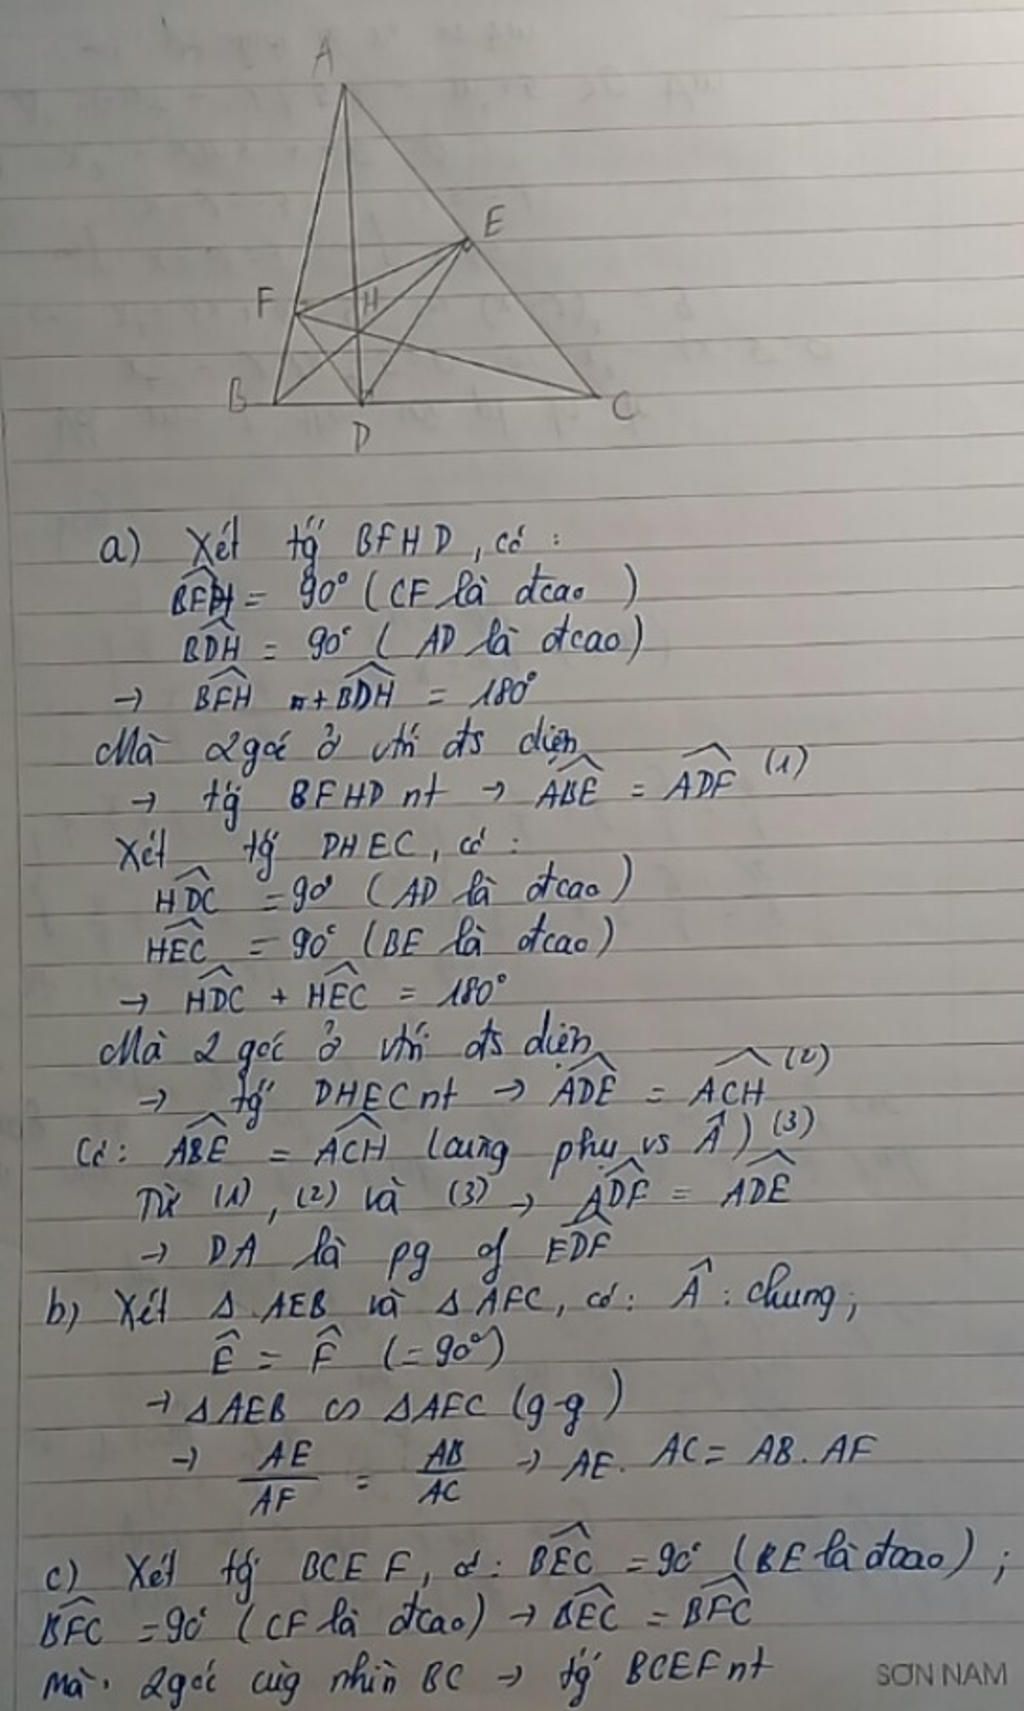 A
E
F
H
B
C
D
a) Xét tg BFHD, có:
BFH = 90° (CF là đcao)
BDH = 90° (AD là đcao)
→ BFH + BDH = 180°
Mà 2 góc ở vtrí đs diện
→ tg BFHD nt → ABE = ADF (1)
Xét tg DHEC, có:
HDC = 90° (AD là đcao)
HEC = 90° (BE là đcao)
→ HDC + HEC = 180°
Mà 2 góc ở vtrí đs diện
→ tg DHEC nt → ADE = ACH (2)
Có: ABE = ACH (cùng phụ vs Â) (3)
Từ (1), (2) và (3) → ADF = ADE
→ DA là pg of EDF
b) Xét Δ AEB và Δ AFC, có: Â: chung;
Ê = F̂ (=90°)
→ Δ AEB ∽ Δ AEC (g-g)
→ AE/AF = AB/AC → AE. AC = AB. AF
c) Xét tg BCEF, có: BEC = 90° (BE là đcao);
BFC = 90° (CF là đcao) → BEC = BFC
Mà 2 góc cùg nhìn BC → tg BCEF nt
SƠN NAM